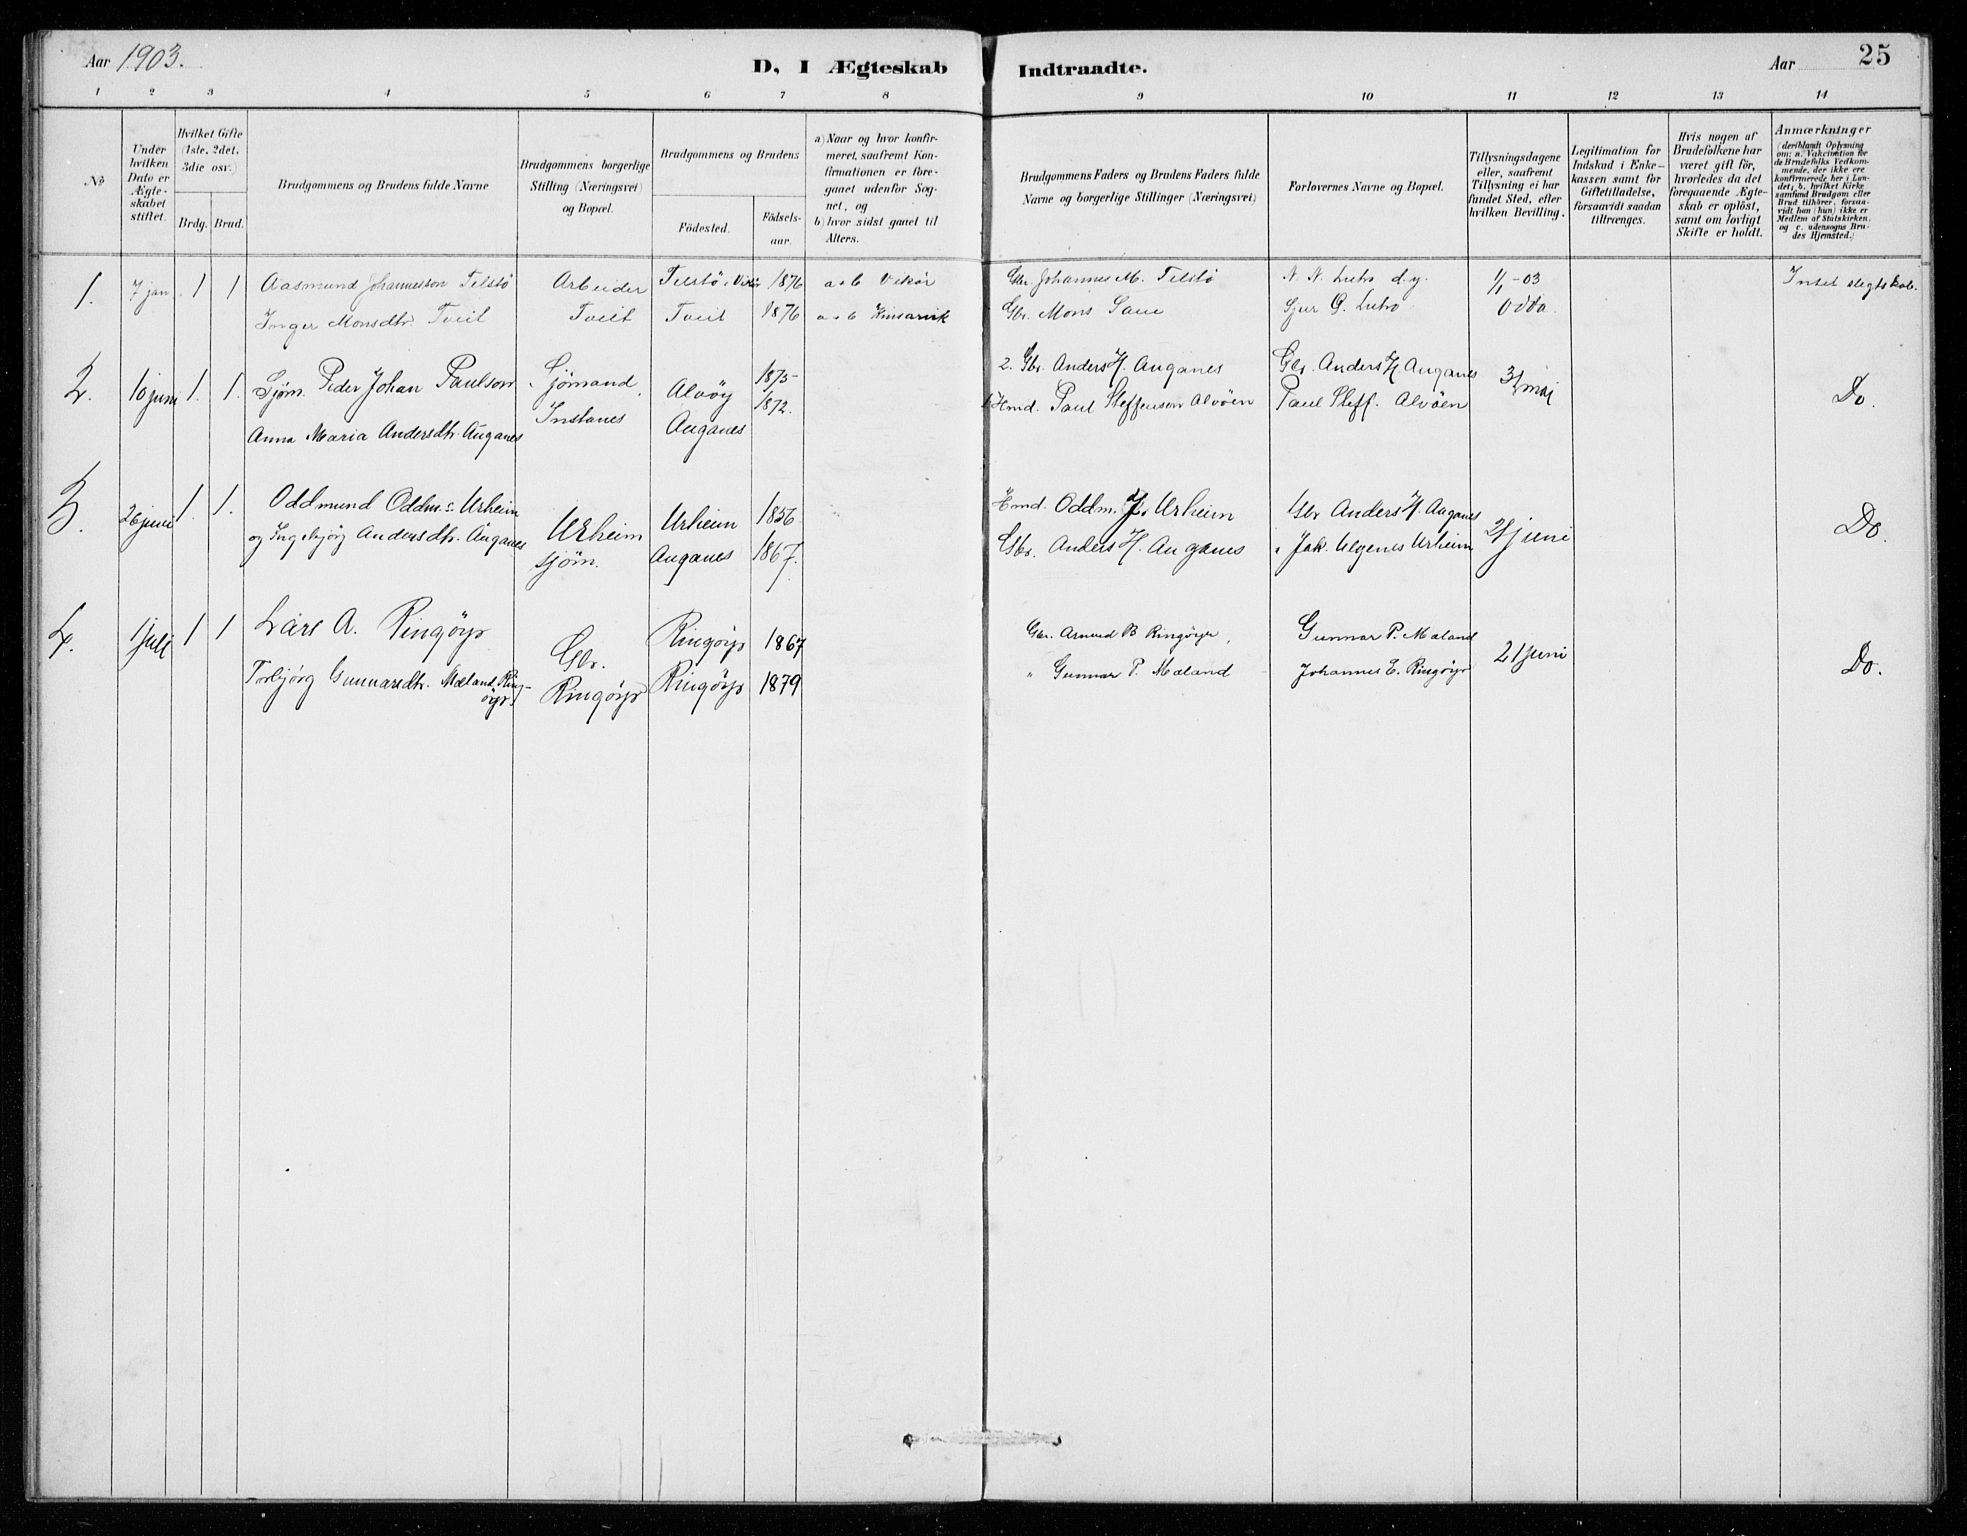 Aar 1903.
D, I Ægteskab Indtraadte.
Aar 25
1 2 3 4 5 6 7 8 9 10 11 12 13 14
No
Under hvilken Dato er Ægteskabet stiftet.
Hvilket Gifte (1ste, 2det, 3die osv.)
Brdg. Brud.
Brudgommens og Brudens fulde Navne
Brudgommens borgerlige Stilling (Næringsvei) og Bopæl.
Brudgommens og Brudens
Födested. Födselsaar.
a) Naar og hvor konfirmeret, saafremt Konfirmationen er foregaaet udenfor Sognet, og
b) hvor sidst gaaet til Alters.
Brudgommens Faders og Brudens Faders fulde Navne og borgerlige Stillinger (Næringsvei)
Forlovernes Navne og Bopæl.
Tillysningsdagene eller, saafremt Tillysning ei har fundet Sted, efter hvilken Bevilling.
Legitimation for Indskud i Enkekassen samt for Giftetilladelse, forsaavidt saadan tiltrænges.
Hvis nogen af Brudefolkene har været gift för, hvorledes da det foregaaende Ægteskab er oplöst, samt om lovligt Skifte er holdt.
Anmærkninger (deriblandt Oplysning om: a. Vakcination for de Brudefolks Vedkommende, der ikke ere konfirmerede her i Landet; b. hvilket Kirkesamfund Brudgom eller Brud tilhörer, forsaavidt han (hun) ikke er Medlem af Statskirken, og c. udensogns Brudes Hjemsted.)
1. 7 jan. 1 1 Aasmund Johannesson Telstö Arbeider Telstö i Vikör 1876 a+b Vikör Gbr. Johannes M. Telstö N. N. Lutro d.y. 1/1-03 Intet slegtskab.
Inger Monsdtr. Tveit Tveit Tveit 1876 a+b Kinsarvik Gbr. Mons Saue Sjur G. Lutro Odda
2. 10 juni 1. 1. Sjöm. Peder Johan Paulson Sjömand Alvöy 1875 2. Gbr. Anders H. Auganes Gbr. Anders H. Auganes 31 mai Do.
Anna Maria Andersdtr. Auganes Instanes Auganes 1872. 1 Hmd. Paul Steffenson Alvöen Paul Steff. Alvöen
3. 26 juni 1. 1. Oddmund Oddms. Urheim Urheim Urheim 1856 Hmd. Oddm. J. Urheim Gbr Anders H. Auganes 21 juni Do.
og Ingebjörg Andersdtr. Auganes sjöm. Auganes 1867. Gbr. Anders H. Auganes " Jak. Ulgenes Urheim
4. 1 juli 1 1 Lars A. Ringöyr Gbr. Ringöyr 1867 Gbr. Arnved B Ringöyr, Gunnar P. Mæland 21 juni Do.
Torbjörg Gunnarsdtr. Mæland, Ringöyr. Ringöyr Ringöyr 1879 " Gunnar P. Mæland Johannes E. Ringöyr